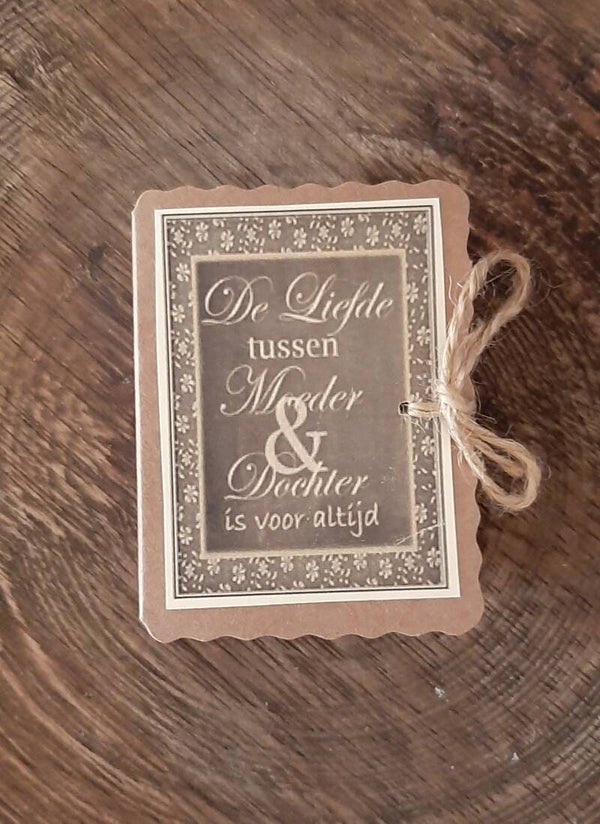 De Liefde
tussen
Moeder
&
Dochter
is voor altijd